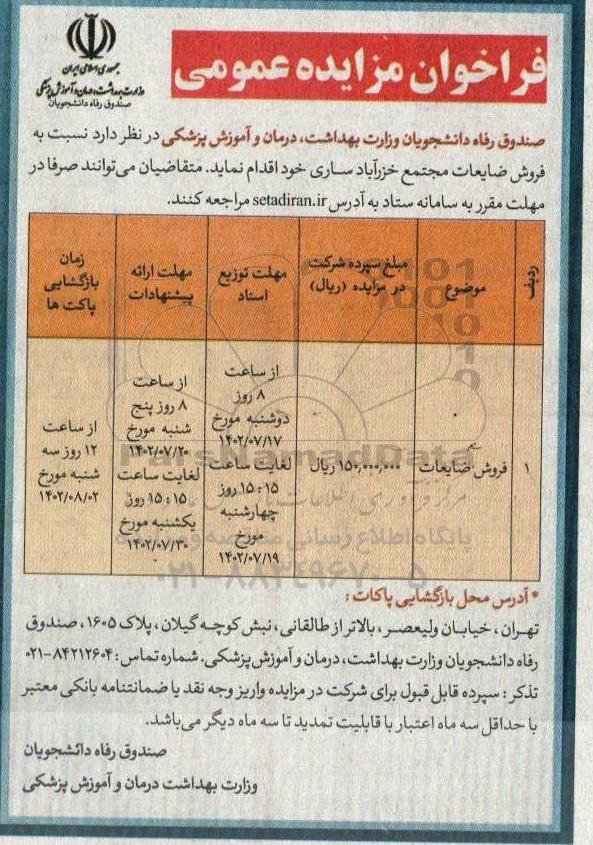 جمهوری اسلامی ایران
وزارت بهداشت، درمان و آموزش پزشکی
صندوق رفاه دانشجویان
فراخوان مزایده عمومی
صندوق رفاه دانشجویان وزارت بهداشت، درمان و آموزش پزشکی در نظر دارد نسبت به
فروش ضایعات مجتمع خزرآباد ساری خود اقدام نماید. متقاضیان می‌توانند صرفا در
مهلت مقرر به سامانه ستاد به آدرس setadiran.ir مراجعه کنند.
ردیف
موضوع
مبلغ سپرده شرکت
در مزایده (ریال)
مهلت توزیع
اسناد
مهلت ارائه
پیشنهادات
زمان
بازگشایی
پاکت ها
۱
فروش ضایعات
۱۵۰,۰۰۰,۰۰۰ ریال
از ساعت
۸ روز
دوشنبه مورخ
۱۴۰۲/۰۷/۱۷
لغایت ساعت
۱۵:۱۵ روز
چهارشنبه
مورخ
۱۴۰۲/۰۷/۱۹
از ساعت
۸ روز پنج
شنبه مورخ
۱۴۰۲/۰۷/۲۰
لغایت ساعت
۱۵:۱۵ روز
یکشنبه مورخ
۱۴۰۲/۰۷/۳۰
از ساعت
۱۲ روز سه
شنبه مورخ
۱۴۰۲/۰۸/۰۲
ParsNamadData
پایگاه اطلاع رسانی
۰۲۱-۸۸۳۴۹۶۷۰-۵
* آدرس محل بازگشایی پاکات :
تهران ، خیابان ولیعصر ، بالاتر از طالقانی ، نبش کوچه گیلان ، پلاک ۱۶۰۵ ، صندوق
رفاه دانشجویان وزارت بهداشت، درمان و آموزش پزشکی. شماره تماس : ۸۴۲۱۲۶۰۴-۰۲۱
تذکر : سپرده قابل قبول برای شرکت در مزایده واریز وجه نقد یا ضمانتنامه بانکی معتبر
با حداقل سه ماه اعتبار با قابلیت تمدید تا سه ماه دیگر می‌باشد.
صندوق رفاه دانشجویان
وزارت بهداشت درمان و آموزش پزشکی